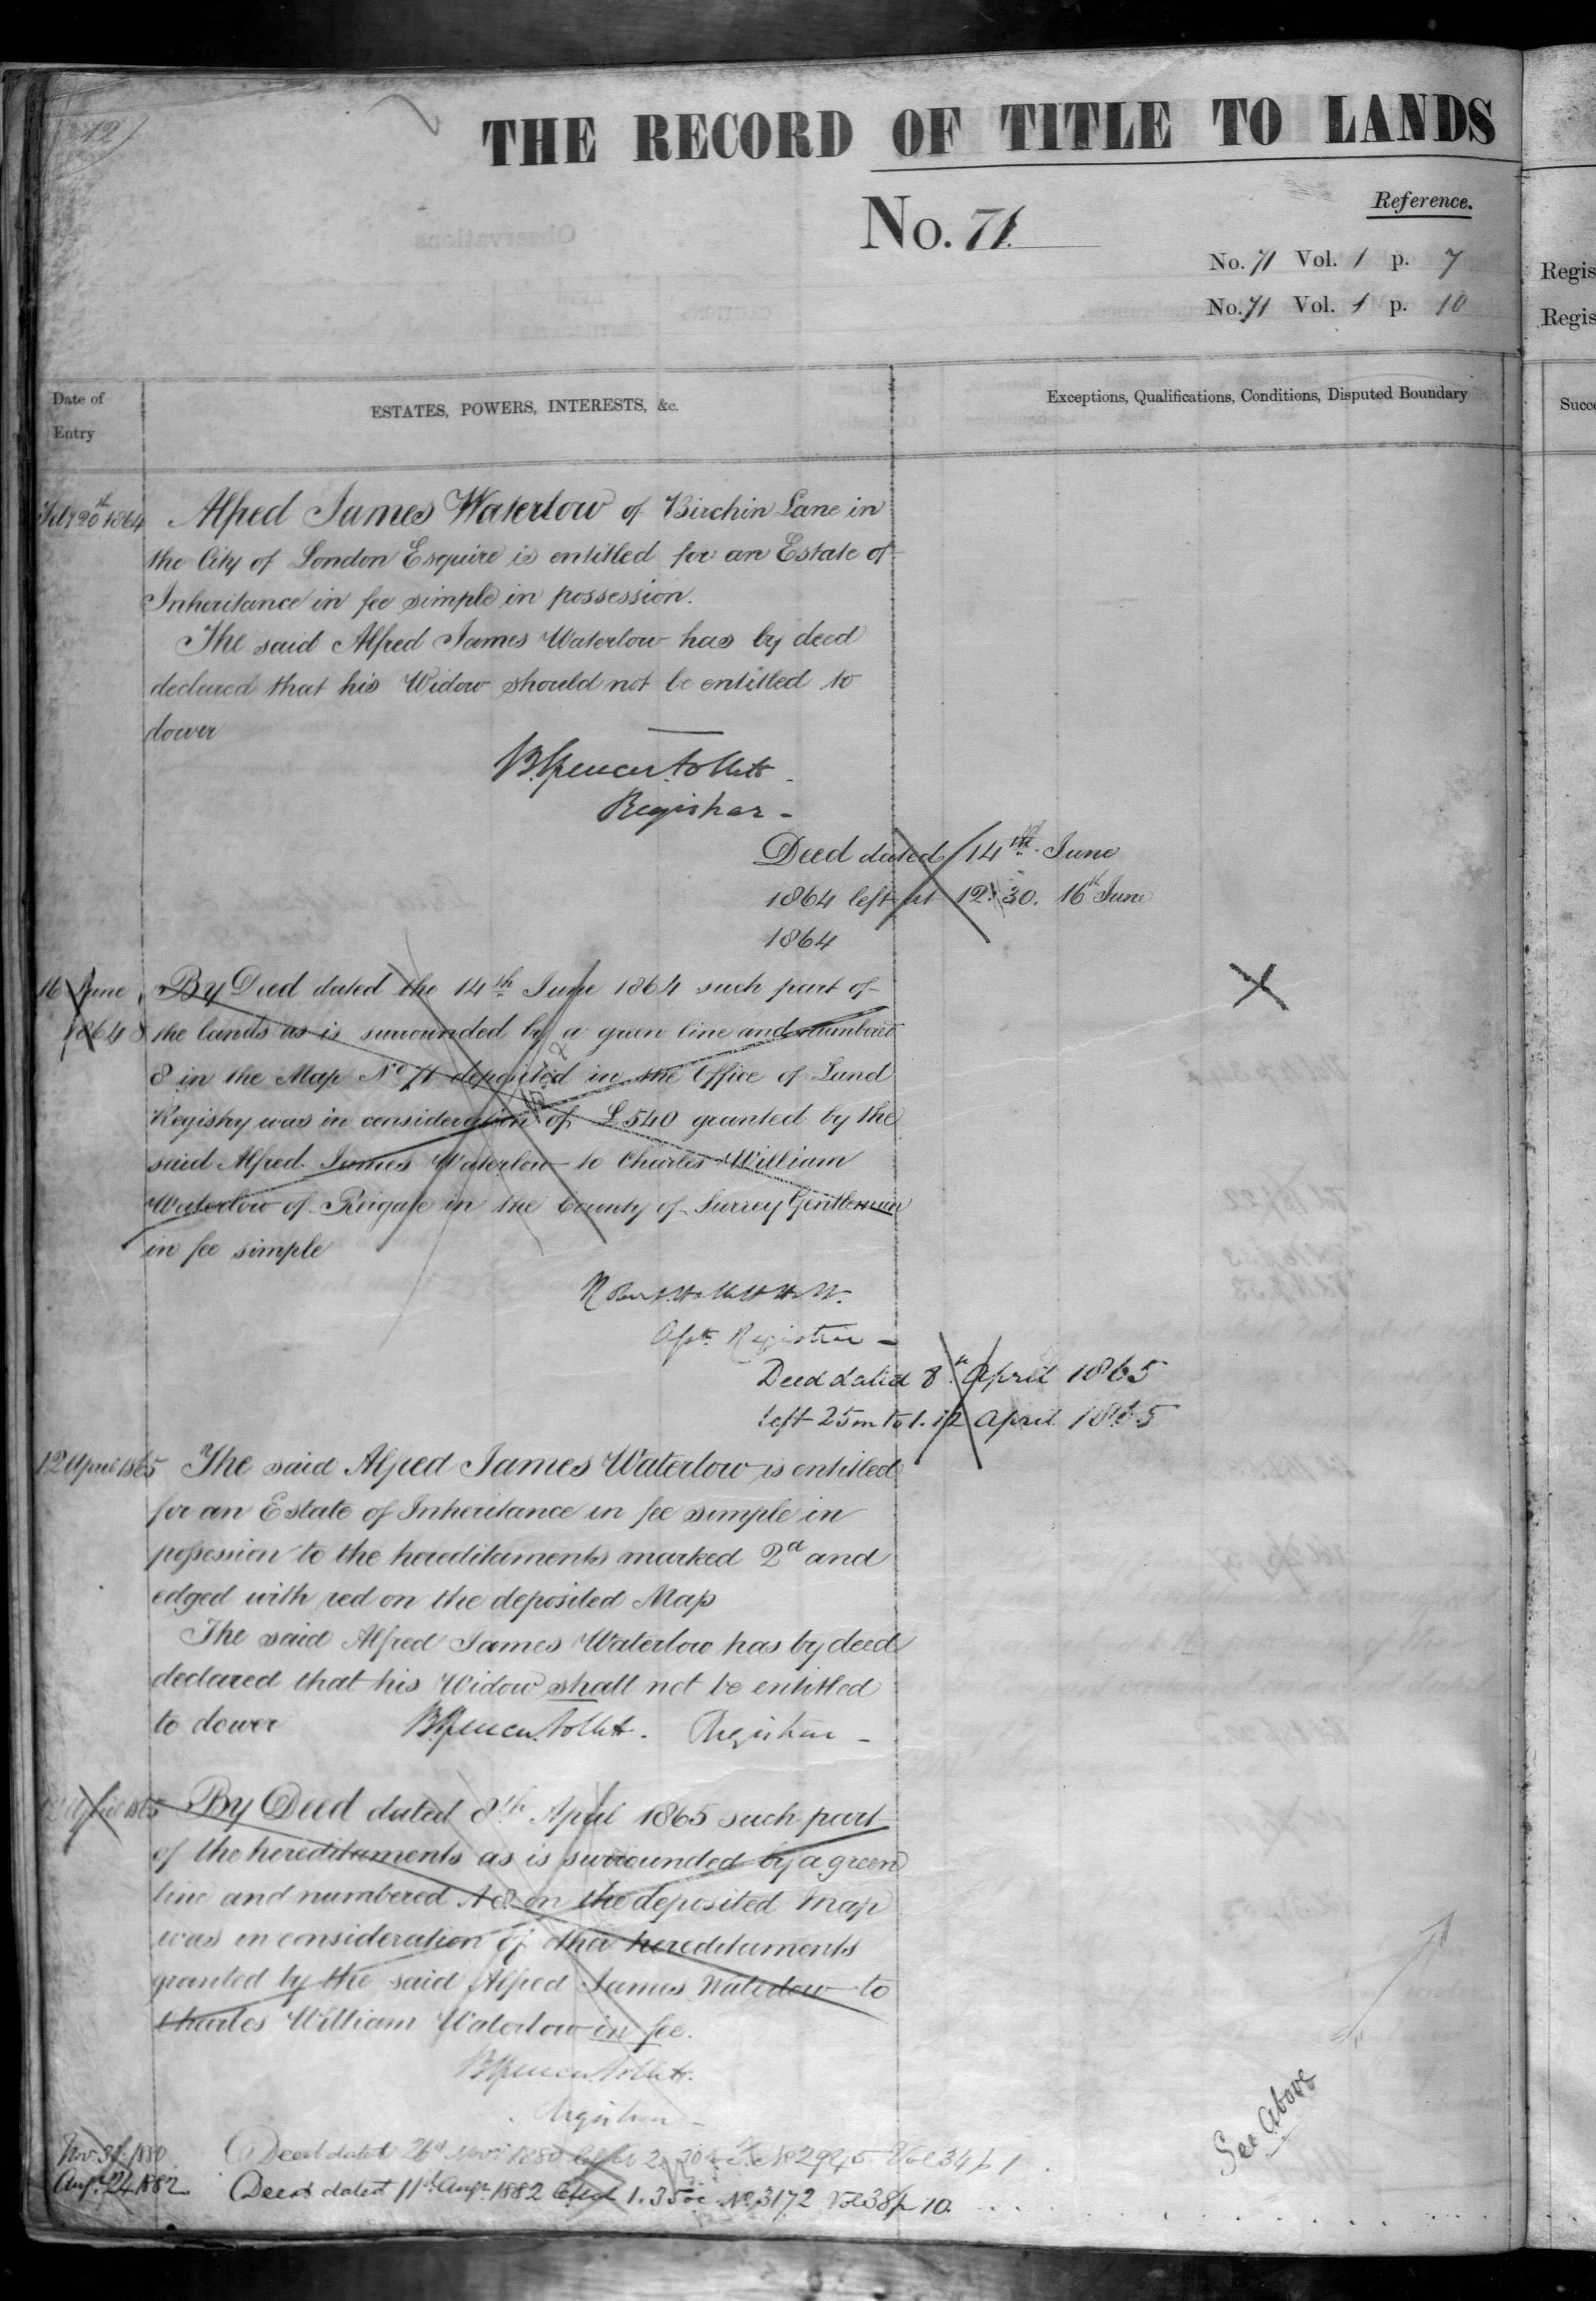 12
THE RECORD OF TITLE TO LANDS
No. 71.
Reference.
No. 71 Vol. 1 p. 7
No. 71 Vol. 1 p. 10
Regis
Regis
Date of
Entry
ESTATES, POWERS, INTERESTS, &c.
Exceptions, Qualifications, Conditions, Disputed Boundary
Succe
Feby 20th 1864 Alfred James Waterlow of Birchin Lane in
the City of London Esquire is entitled for an Estate of
Inheritance in fee simple in possession.
The said Alfred James Waterlow has by deed
declared that his Widow should not be entitled to
dower
B. Spencer Follett
Registrar
Deed dated 14th June
1864 left at 12.30. 16th June
1864
16 June By Deed dated the 14th June 1864 such part of
1864 the lands as is surrounded by a green line and numbered
8 in the Map No 71 deposited in the Office of Land
Registry was in consideration of £540 granted by the
said Alfred James Waterlow to Charles William
Waterlow of Reigate in the County of Surrey Gentleman
in fee simple
Asst. Registrar
Deed dated 8th April 1865
left 25m to 1. 12 April 1865
12 April 1865 The said Alfred James Waterlow is entitled
for an Estate of Inheritance in fee simple in
possession to the hereditaments marked 2a and
edged with red on the deposited Map
The said Alfred James Waterlow has by deed
declared that his Widow shall not be entitled
to dower B. Spencer Follett. Registrar
12 April 1865 By Deed dated 8th April 1865 such part
of the hereditaments as is surrounded by a green
line and numbered 8 on the deposited Map
was in consideration of other hereditaments
granted by the said Alfred James Waterlow to
Charles William Waterlow in fee.
B. Spencer Follett.
Registrar
See Above
Nov. 1880 Deed dated Novr 1880 No 2995 Vol 34 p 1
Augt. 24 1882 Deed dated 11th Augt. 1882 left 1.35 No. 3172 Vol 38 p 10.